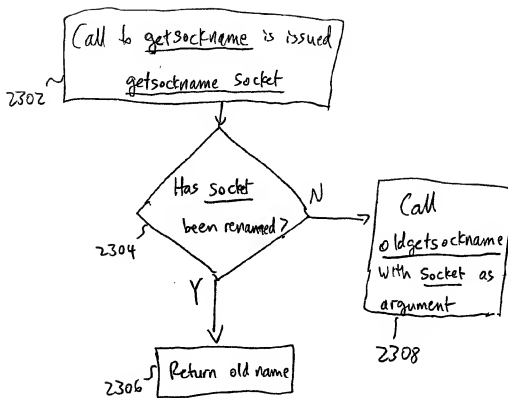 Call to getsockname is issued
getsockname socket
2302
Has socket
been renamed?
N
2304
Y
Call
oldgetsockname
with socket as
argument
2308
2306
Return old name